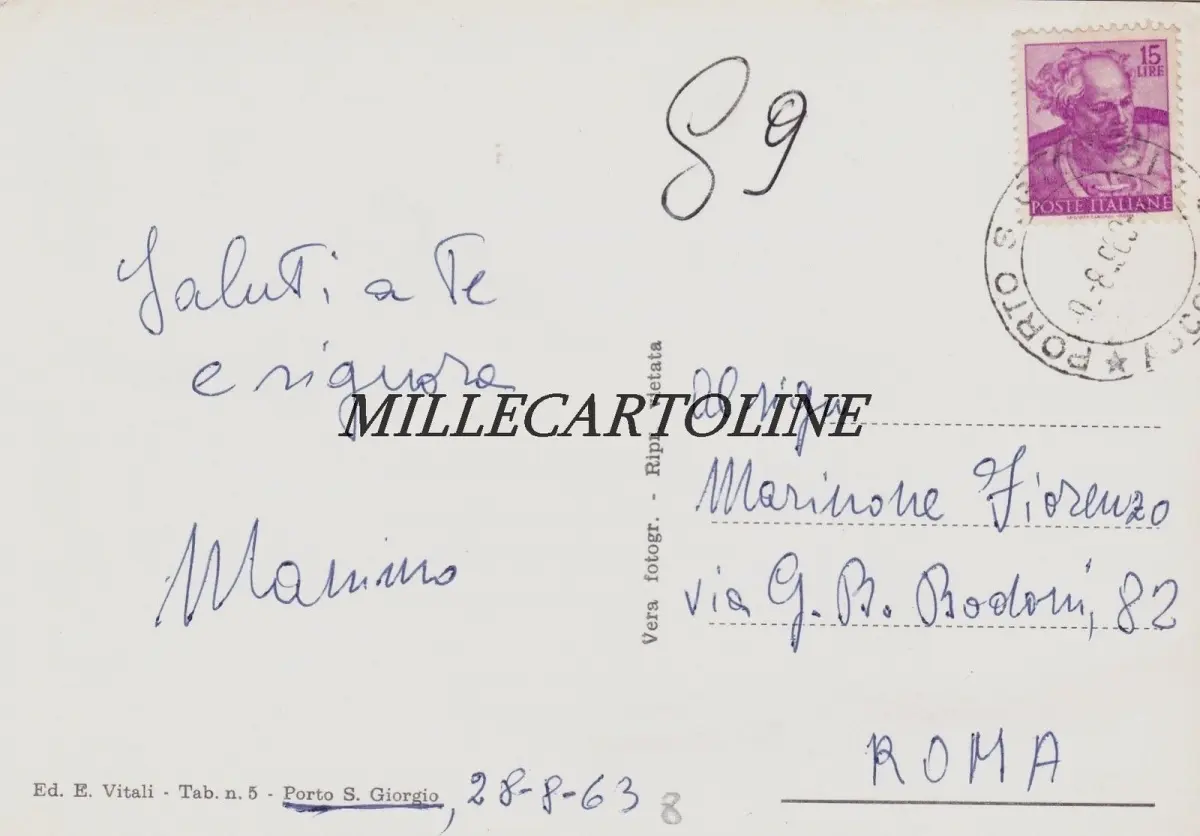 89
15
LIRE
POSTE ITALIANE
PORTO S.
Saluti a Te
e signora
Vera fotogr. - Ripr. vietata
MILLECARTOLINE
Marinone Fiorenzo
via G. B. Bodoni, 82
ROMA
Ed. E. Vitali - Tab. n. 5 - Porto S. Giorgio, 28-8-63
8